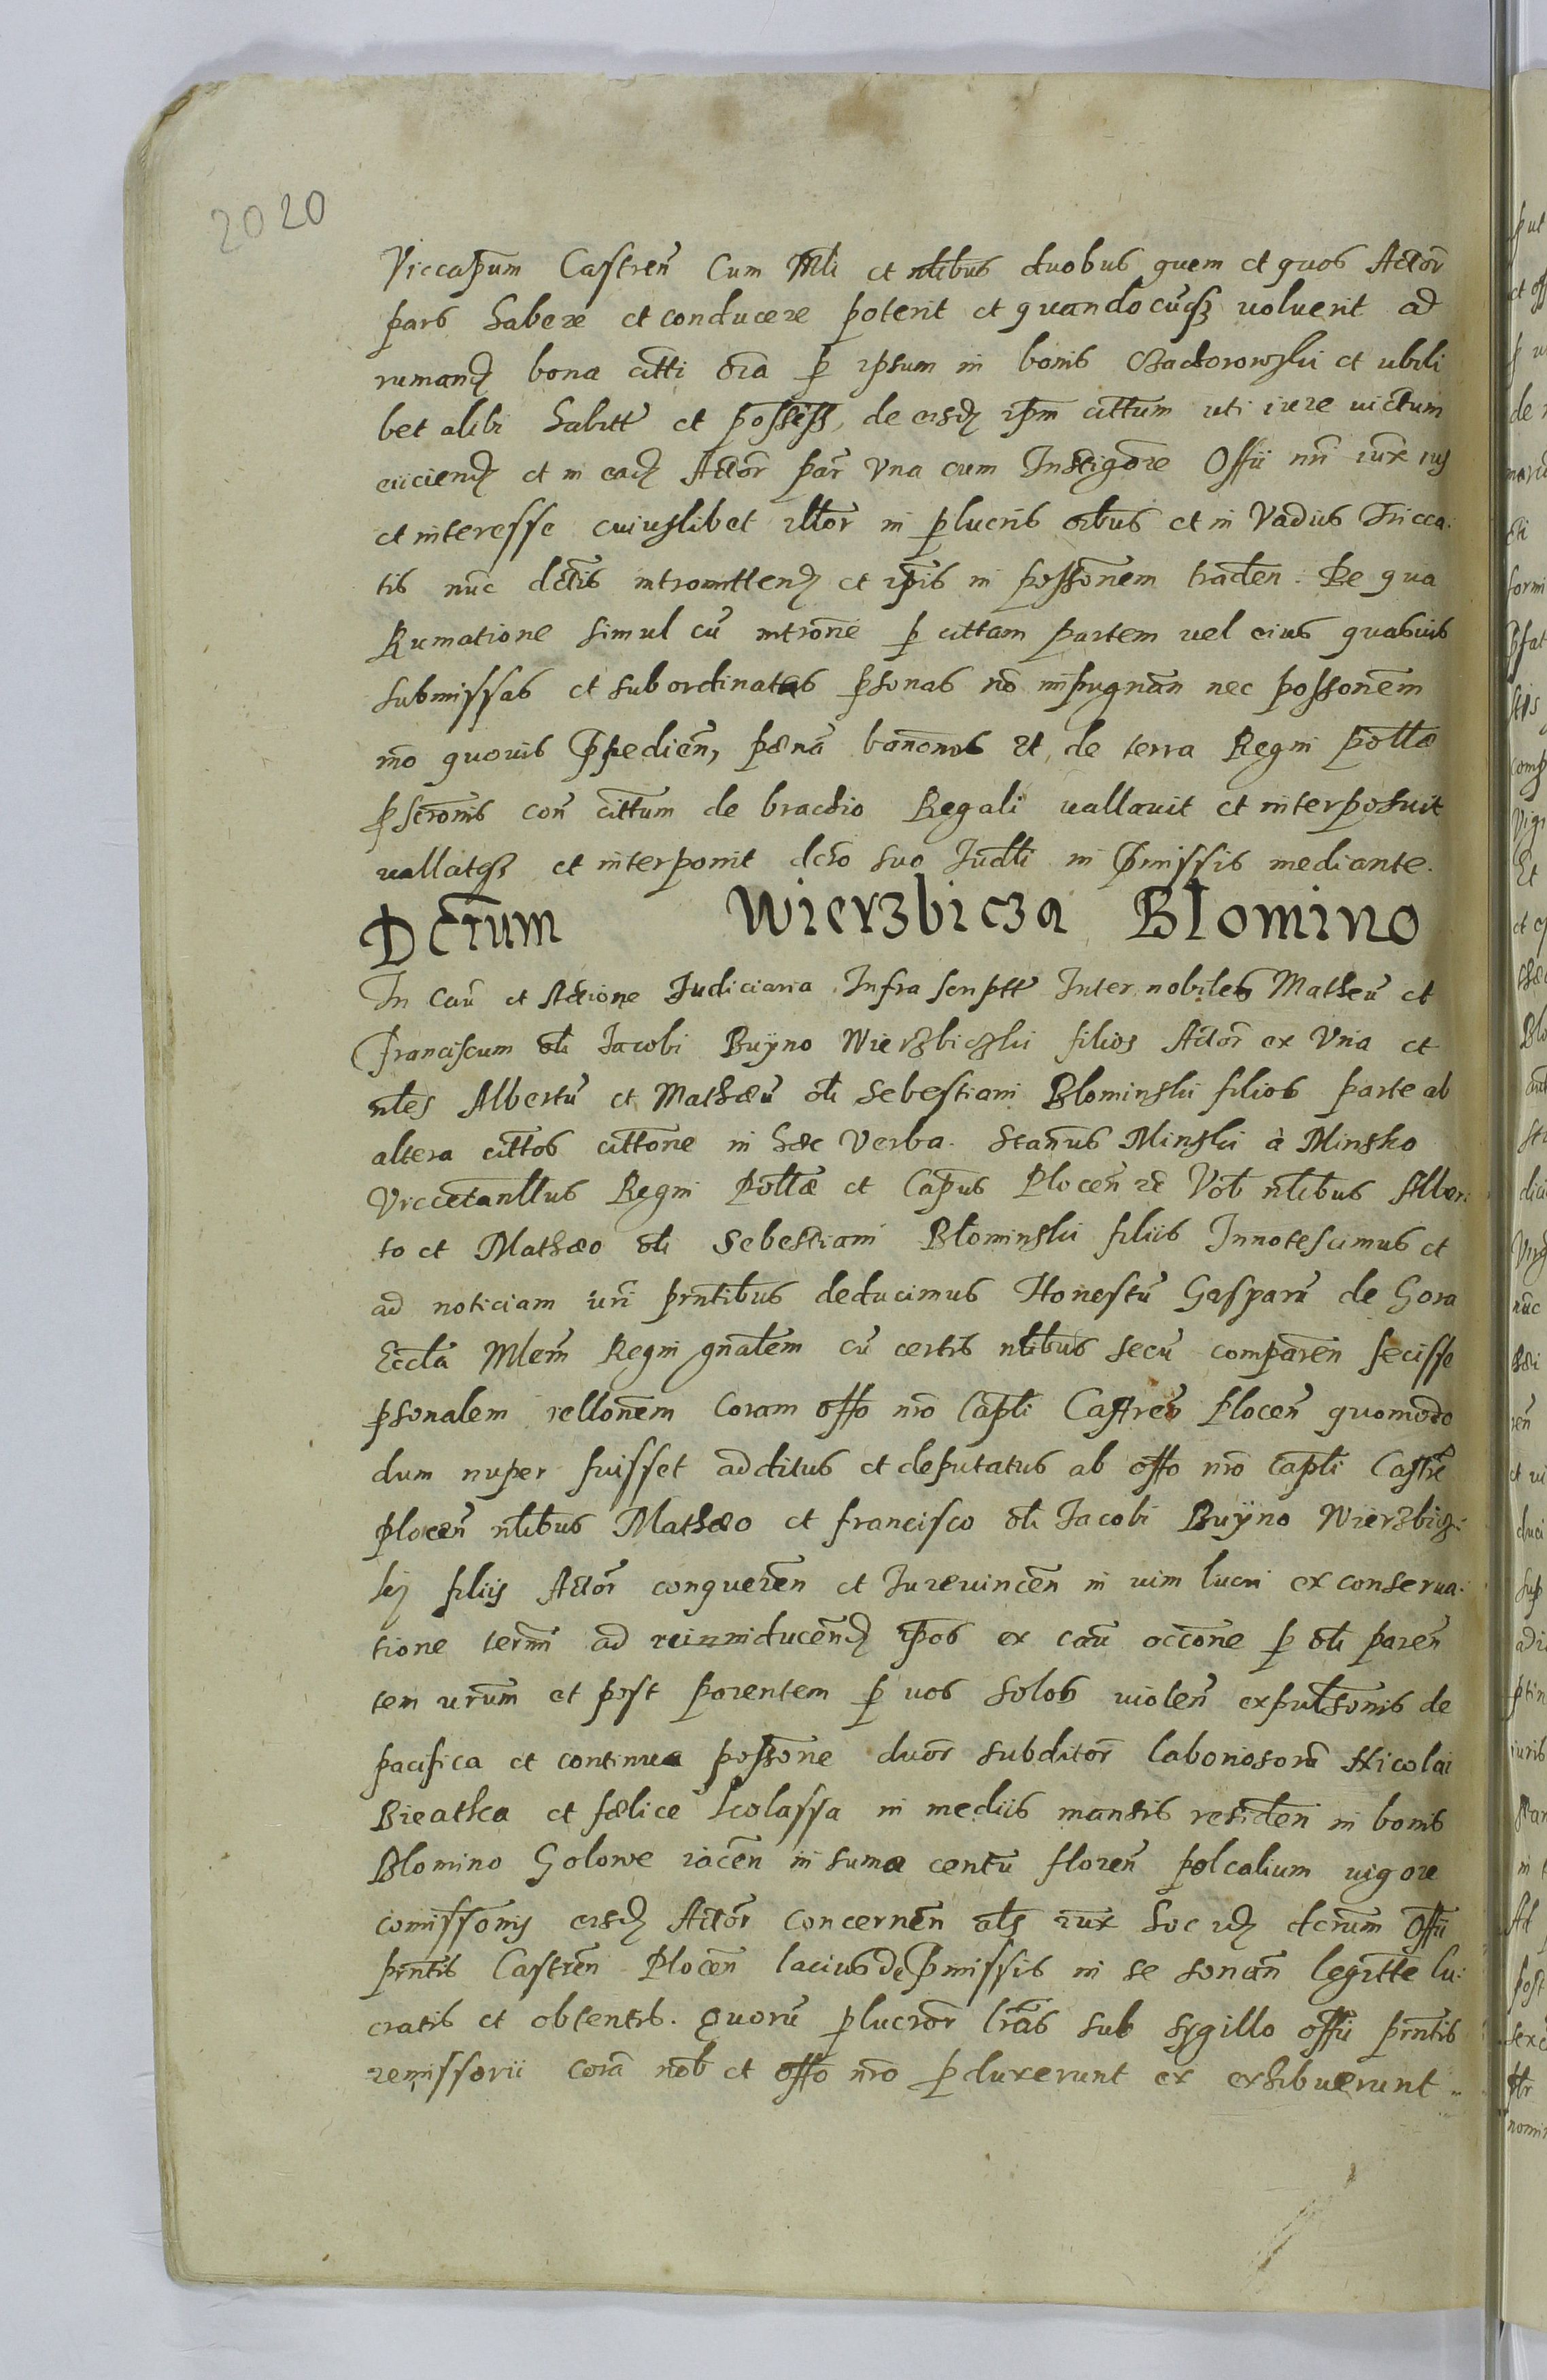 2020
Viccapum Castren Cum Mli et nlibus duobus quem et quos Actor
pars habere et conducere poterit et quandocuqz voluerit ad
rumand bona citti oia p ipsum in bonis et ubili
bet alibi habitt et possess, de eisd ipm cittum uti iure victum
eiiciend et in ead Actor par Una cum Instigore Offii nri iux ius
et interesse cuiuslibet illor in plucris oibus et in Vadiis Tricca
tis nuc dctis intromittend et ipis in possonem traden. De qua
Rumatione simul cu introne p cittam partem vel eius quasvis
submissas et subordinatas psonas no impugnan nec possonem
mo quovis ppedien, pæna banonis et de terra Regni Pollæ
pscronis con cittum de brachio Regali vallavit et interposuit
vallatqz et interponit dcto suo Judli in pmissis mediante.
Dctum Wierzbicza Blomino
In Cau et Actione Judiciaria Infra scriptt Inter nobiles Matheu et
Franciscum oli Jacobi Buÿno Wierzbiczki filios Actor ex Una et
nles Albertu et Mathæu oli Sebestiani Blominski filios parte ab
altera cittos cittone in hæc Verba. Stanus Minski à Minsko
Vicecetanllus Regni Pollæ et Capus Plocen rc Vob nlibus Alber
to et Mathæo oli Sebestiani Blominski filiis Innotescimus et
ad noticiam vri prntibus deducimus Honestu Gasparu de Gora
Eccla Mlem Regni gnalem cu certis nlibus secu comparen fecisse
psonalem rellonem Coram offo nro Capli Castren Plocen quomodo
dum nuper fuisset additus et deputatus ab offo nro Capli Castre
Plocen nlibus Mathæo et Francisco oli Jacobi Buÿno Wierzbicz
kij filiis Actor conqueren et Jurevincen in vim lucri ex conserva
tione termi ad reinniducend ipos ex cau occone p oli paren
tem vrum et post parentem p vos solos violen expulsonis de
pacifica et continua possone duor subditor laboriosoru Nicolai
Bieatka et fælice Kolassa in mediis mansis residen in bonis
Blomino Golowe iacen in suma centu floren polcalium vigore
comissonis eisd Actor concernen als iux hoc id dcrum Offii
prntis Castren Plocen lacius de pmissis in se sonan legitte lu
cratis et obtentis. Quoru plucror lras sub sygillo offii prntis
remissorii cora nob et offo nro pduxerunt ex exhibuerunt